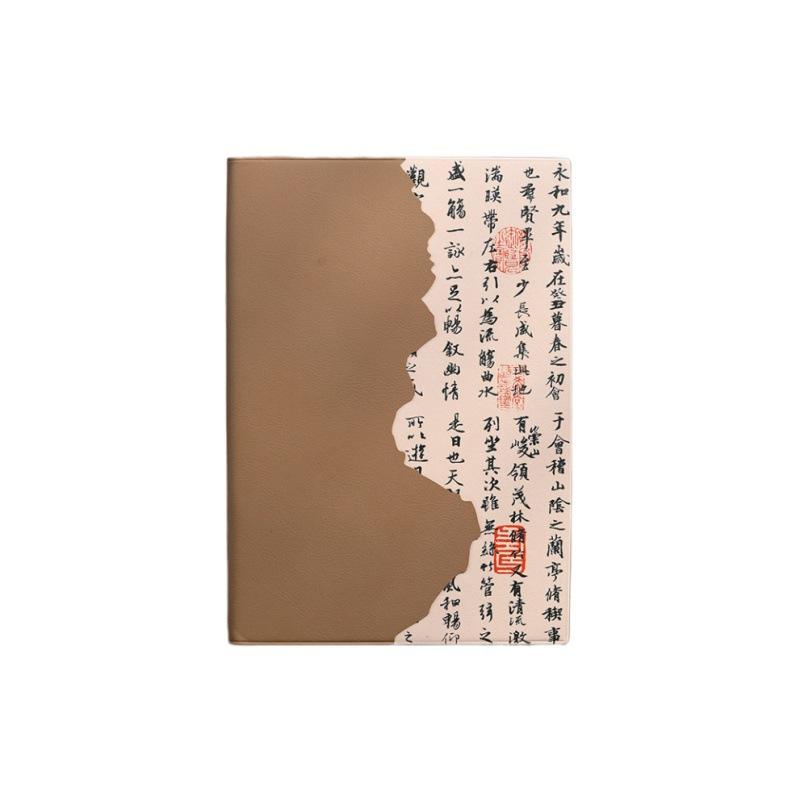 永和九年歲在癸丑暮春之初會于會稽山陰之蘭亭脩稧事
也羣賢畢至少長咸集此地有崇山峻領茂林脩竹又有清流激
湍暎帶左右引以為流觴曲水列坐其次雖無絲竹管弦之
盛一觴一詠亦足以暢敘幽情是日也天
風和暢仰
觀
所以遊
之